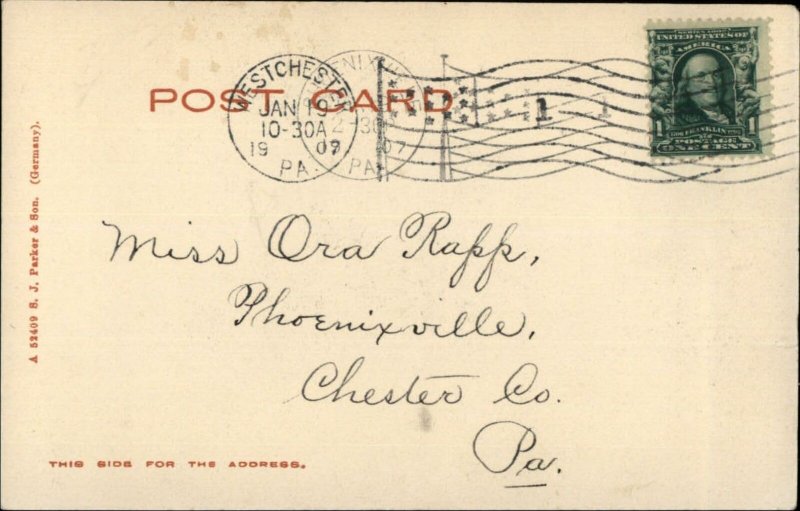 POST CARD
WESTCHESTER
JAN 19
10-30A
1907
PA.
PHOENIXVILLE
2-30
07
PA.
1
1
SERIES 1902
UNITED STATES OF
AMERICA
FRANKLIN
POSTAGE
1 ONE CENT 1
A 52409 S. J. Parker & Son. (Germany).
Miss Ora Rapp,
Phoenixville,
Chester Co.
Pa.
THIS SIDE FOR THE ADDRESS.